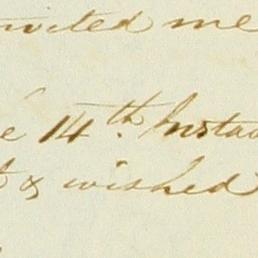 invited me
e 14th. Insta
t & wished